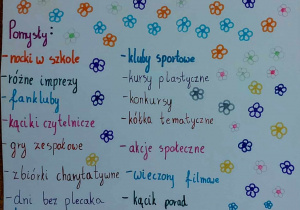 Pomysły:
- nocki w szkole
- różne imprezy
- fankluby
- kąciki czytelnicze
- gry zespołowe
- zbiórki charytatywne
- dni bez plecaka
- kluby sportowe
- kursy plastyczne
- konkursy
- kółka tematyczne
- akcje społeczne
- wieczory filmowe
- kącik porad